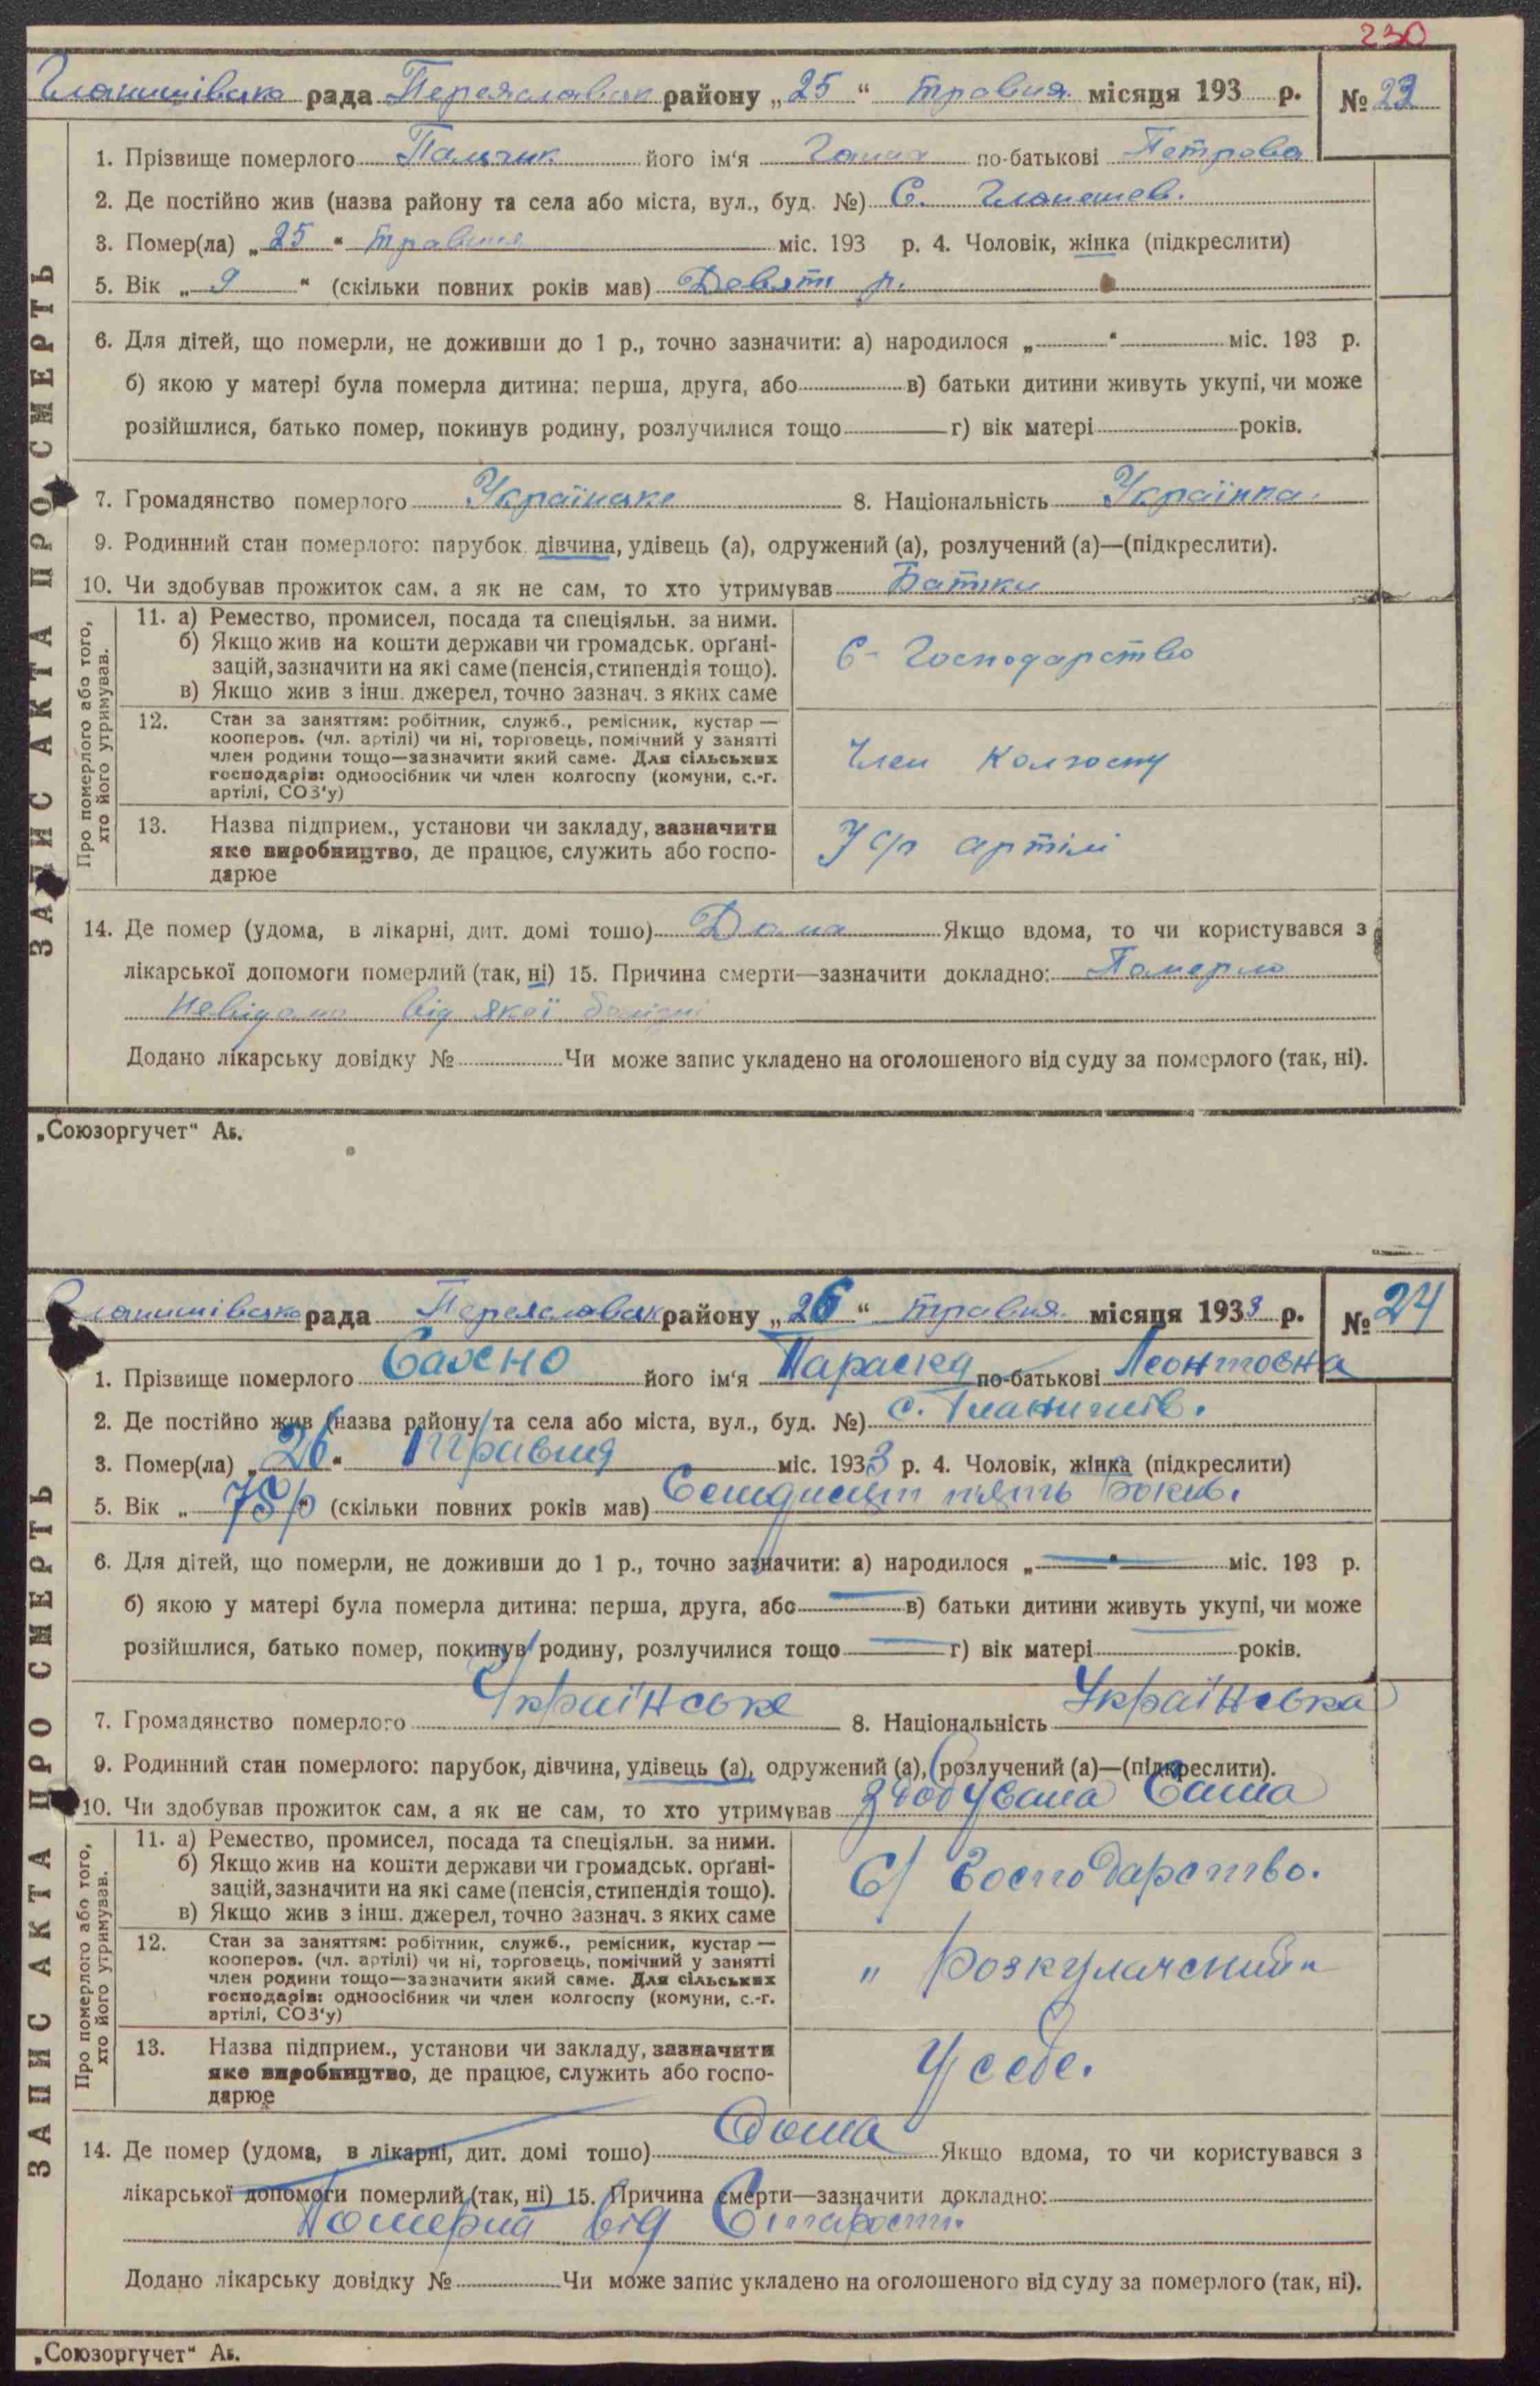 230
Гланишівська рада Переяславськ району „25“ травня місяця 193 р. № 23
1. Прізвище померлого Пальчик його ім‘я Ганна по-батькові Петрова
2. Де постійно жив (назва району та села або міста, вул., буд. №) С. Гланешев.
3. Помер(ла) „25“ травня міс. 193 р. 4. Чоловік, жінка (підкреслити)
5. Вік „9“ (скільки повних років мав) Девять р.
6. Для дітей, що померли, не доживши до 1 р., точно зазначити: а) народилося „ “ міс. 193 р.
б) якою у матері була померла дитина: перша, друга, або в) батьки дитини живуть укупі, чи може
розійшлися, батько помер, покинув родину, розлучилися тощо г) вік матері років.
7. Громадянство померлого Українське 8. Національність Українка.
9. Родинний стан померлого: парубок, дівчина, удівець (а), одружений (а), розлучений (а)—(підкреслити).
10. Чи здобував прожиток сам, а як не сам, то хто утримував Батьки
Про померлого або того, хто його утримував.
11. а) Ремество, промисел, посада та спеціяльн. за ними.
б) Якщо жив на кошти держави чи громадськ. орґані-
зацій, зазначити на які саме (пенсія, стипендія тощо).
в) Якщо жив з інш. джерел, точно зазнач. з яких саме
С- Господарство
12. Стан за заняттям: робітник, служб., ремісник, кустар —
кооперов. (чл. артілі) чи ні, торговець, помічний у занятті
член родини тощо—зазначити який саме. Для сільських
господарів: одноосібник чи член колгоспу (комуни, с.-г.
артілі, СОЗ‘у)
Член Колгоспу
13. Назва підприєм., установи чи закладу, зазначити
яке виробництво, де працює, служить або госпо-
дарює
У с/г артілі
14. Де помер (удома, в лікарні, дит. домі тощо) Дома Якщо вдома, то чи користувався з
лікарської допомоги померлий (так, ні) 15. Причина смерти—зазначити докладно: Померло
невідомо від якої болізні
Додано лікарську довідку № Чи може запис укладено на оголошеного від суду за померлого (так, ні).
ЗАПИС АКТА ПРО СМЕРТЬ
„Союзоргучет“ Аб.
Гланишівська рада Переяславськ району „26“ травня місяця 1933 р. № 24
1. Прізвище померлого Сахно його ім‘я Параска по-батькові Леонтовна
2. Де постійно жив (назва району та села або міста, вул., буд. №) с. Гланишів.
3. Помер(ла) „26“ Травня міс. 1933 р. 4. Чоловік, жінка (підкреслити)
5. Вік „75р“ (скільки повних років мав) Семдисят пять років.
6. Для дітей, що померли, не доживши до 1 р., точно зазначити: а) народилося „ “ міс. 193 р.
б) якою у матері була померла дитина: перша, друга, або в) батьки дитини живуть укупі, чи може
розійшлися, батько помер, покинув родину, розлучилися тощо г) вік матері років.
7. Громадянство померлого Українське 8. Національність Українська
9. Родинний стан померлого: парубок, дівчина, удівець (а), одружений (а), розлучений (а)—(підкреслити).
10. Чи здобував прожиток сам, а як не сам, то хто утримував Здобувала Сама
Про померлого або того, хто його утримував.
11. а) Ремество, промисел, посада та спеціяльн. за ними.
б) Якщо жив на кошти держави чи громадськ. орґані-
зацій, зазначити на які саме (пенсія, стипендія тощо).
в) Якщо жив з інш. джерел, точно зазнач. з яких саме
С/ Господарство.
12. Стан за заняттям: робітник, служб., ремісник, кустар —
кооперов. (чл. артілі) чи ні, торговець, помічний у занятті
член родини тощо—зазначити який саме. Для сільських
господарів: одноосібник чи член колгоспу (комуни, с.-г.
артілі, СОЗ‘у)
„ Розкулачений“
13. Назва підприєм., установи чи закладу, зазначити
яке виробництво, де працює, служить або госпо-
дарює
У себе.
14. Де помер (удома, в лікарні, дит. домі тощо) Дома Якщо вдома, то чи користувався з
лікарської допомоги померлий (так, ні) 15. Причина смерти—зазначити докладно:
Померла від Старости.
Додано лікарську довідку № Чи може запис укладено на оголошеного від суду за померлого (так, ні).
ЗАПИС АКТА ПРО СМЕРТЬ
„Союзоргучет“ Аб.